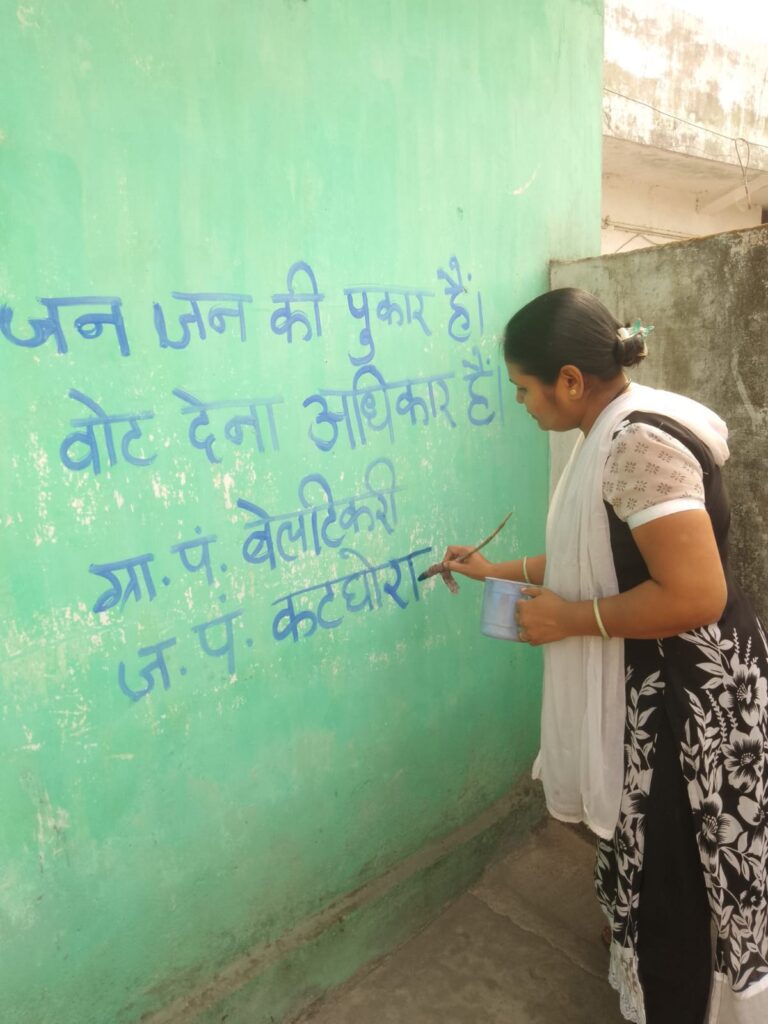 जन जन की पुकार हैं।
वोट देना अधिकार हैं।
ग्रा. पं. बेलटिकरी
ज. पं. कटघोरा